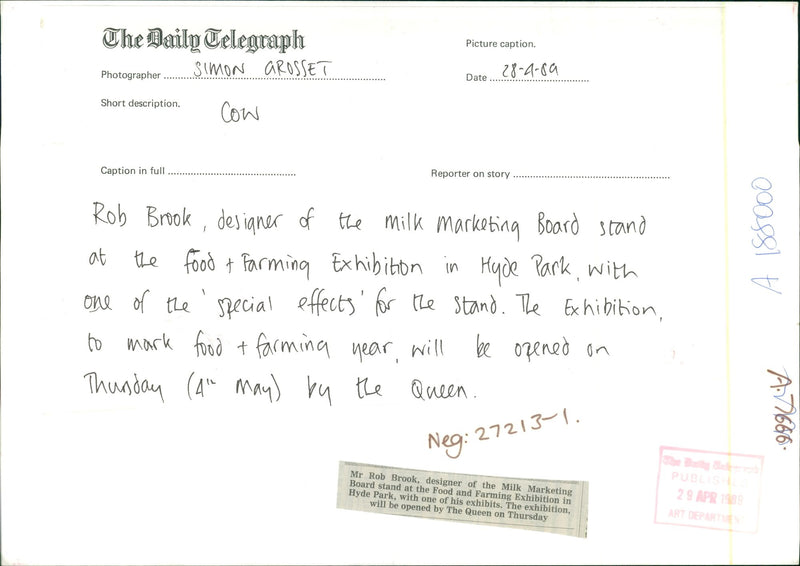 The Daily Telegraph
Picture caption.
Photographer SIMON GROSSET
Date 28-4-89
Short description.
COW
Caption in full
Reporter on story
Rob Brook, designer of the milk marketing Board stand
at the food + Farming Exhibition in Hyde Park, with
one of the 'special effects' for the stand. The Exhibition,
to mark food + farming year, will be opened on
Thursday (4th May) by the Queen.
Neg: 27213-1.
Mr Rob Brook, designer of the Milk Marketing
Board stand at the Food and Farming Exhibition in
Hyde Park, with one of his exhibits. The exhibition,
will be opened by The Queen on Thursday
The Daily Telegraph
PUBLISHED
29 APR 1989
ART DEPARTMENT
A 188000
A.7666.